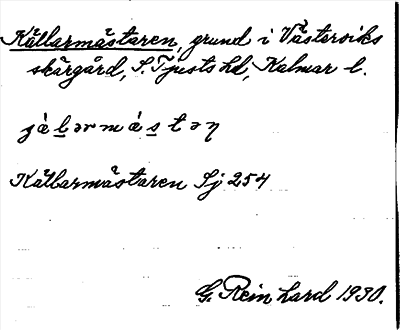 Källarmästaren, grund i Västerviks
skärgård, S. Tjusts hd, Kalmar l.
Källarmästaren Sj 254
G. Rein hard 1930.